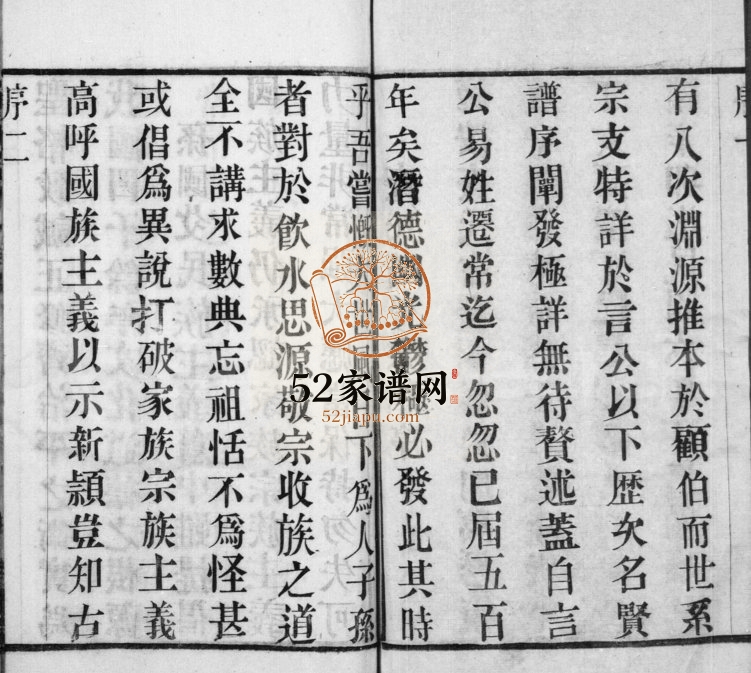 有八次淵源推本於顧伯而世系
宗支特詳於言公以下歷次名賢
譜序闡發極詳無待贅述蓋自言
公易姓遷常迄今忽忽已屆五百
年矣潛德 光 必發此其時
乎吾嘗慨 下為人子孫
者對於飲水思源敬宗收族之道
全不講求數典忘祖恬不為怪甚
或倡為異說打破家族宗族主義
高呼國族主義以示新穎豈知古
序二
52家谱网
52jiapu.com